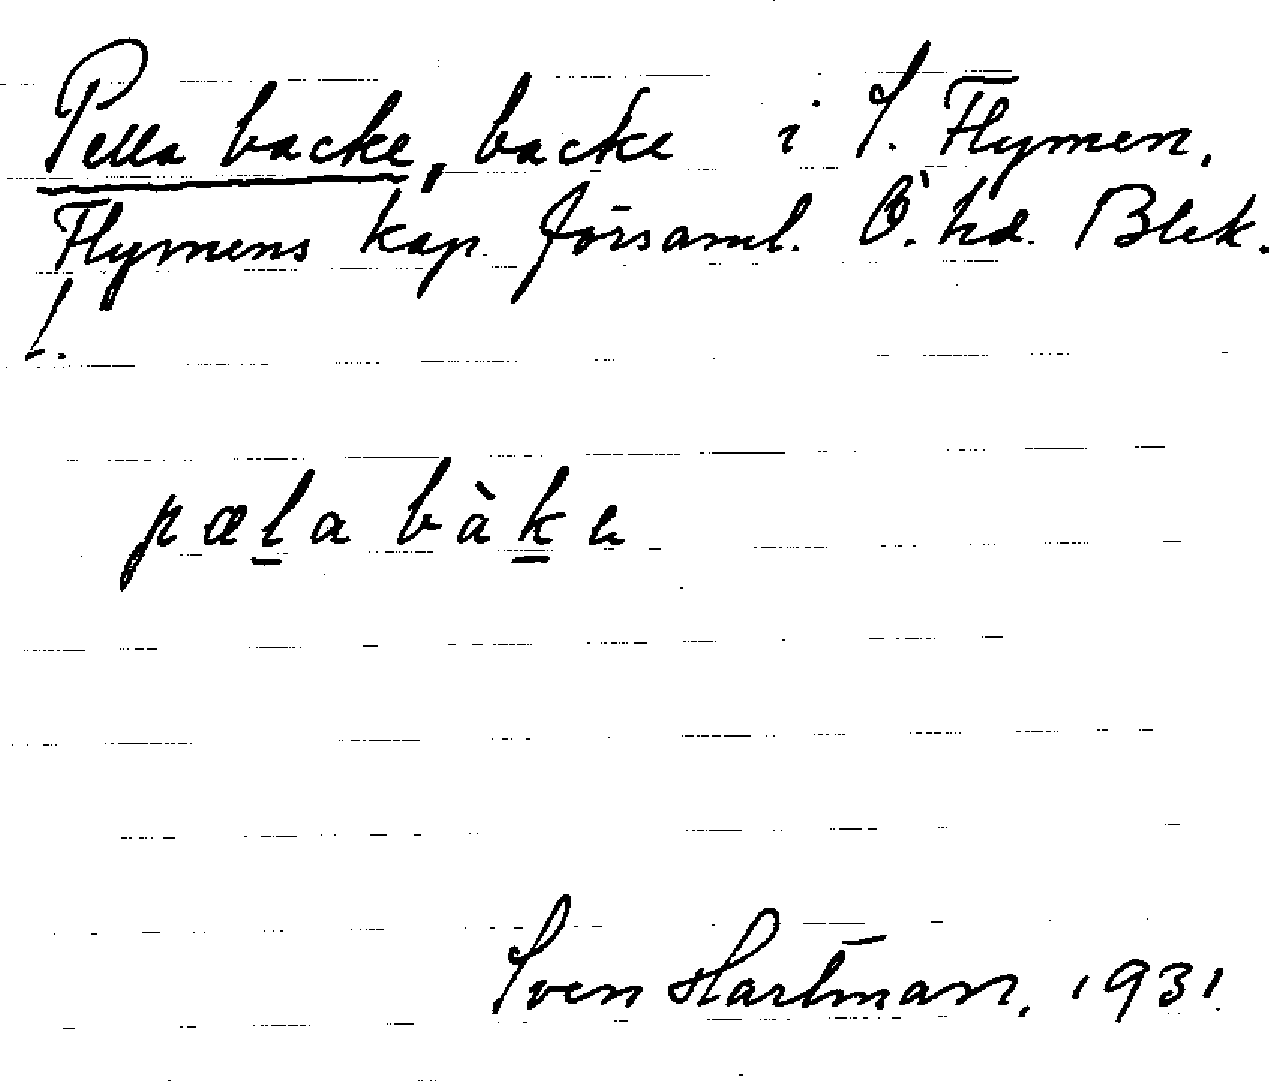 Pella backe, backe i S. Flymen,
Flymens kap. församl. Ö. hd. Blek.
l.
pæla bàke
Sven Hartman, 1931.